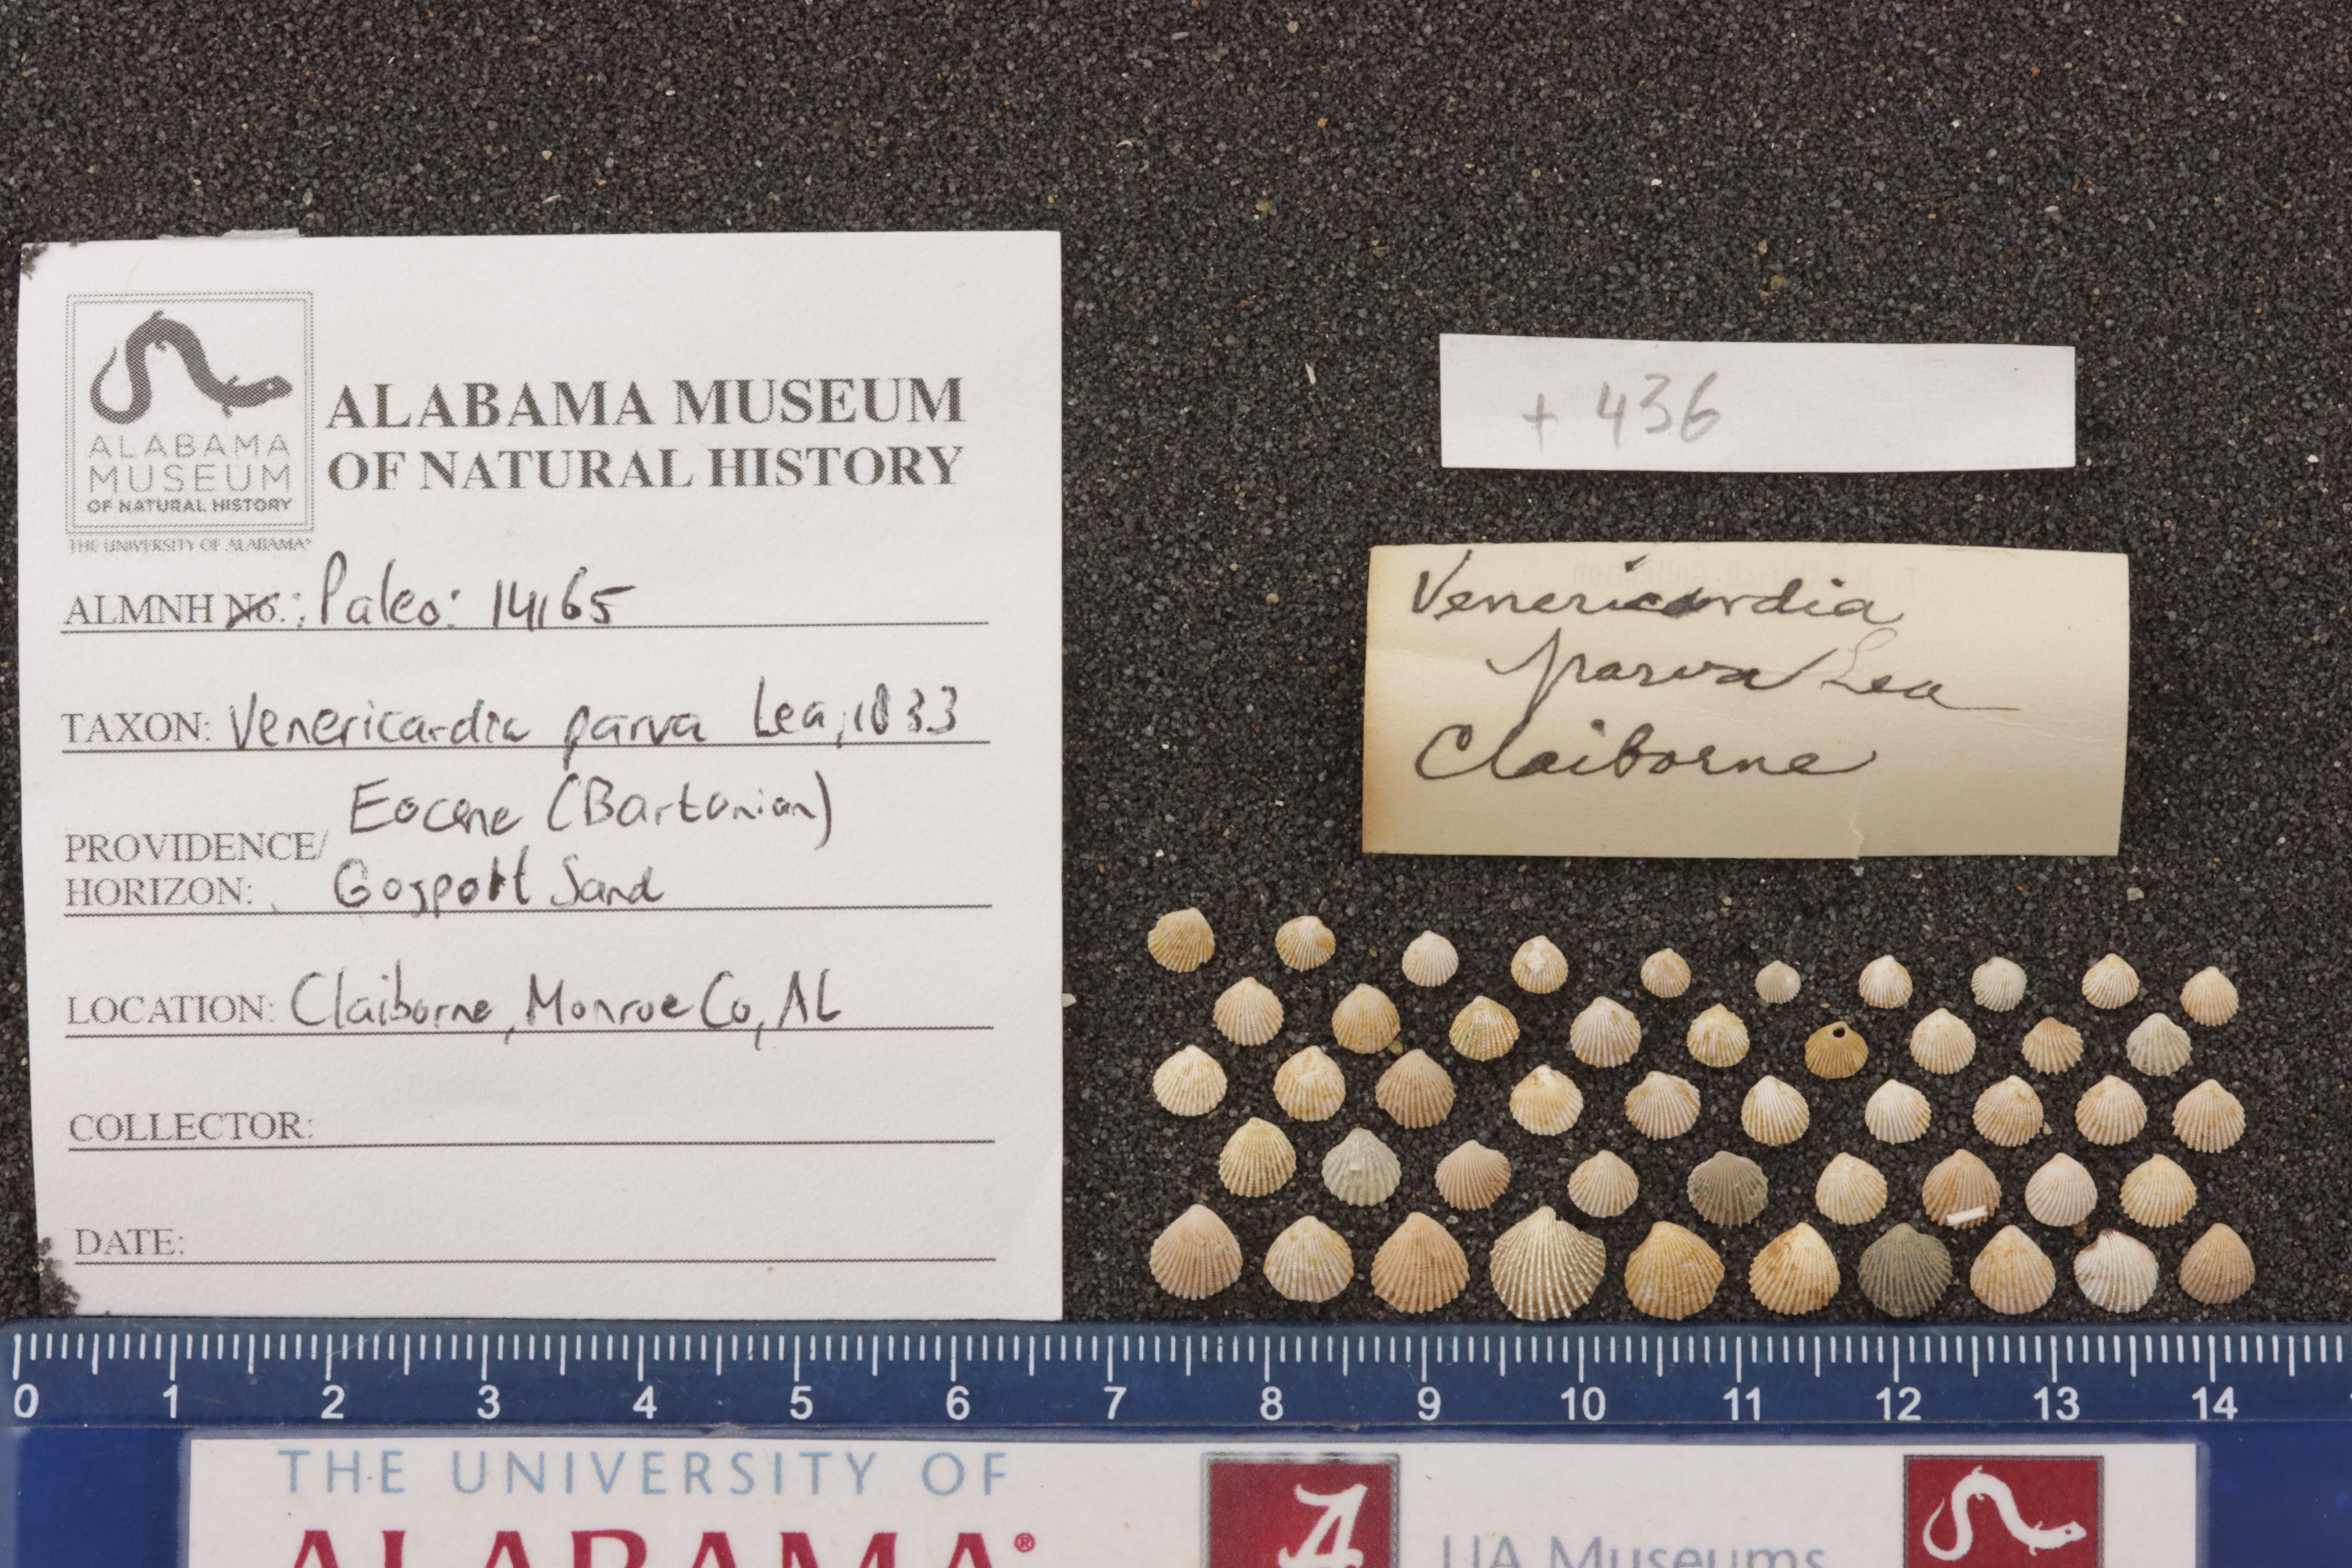 ALABAMA
MUSEUM
OF NATURAL HISTORY
THE UNIVERSITY OF ALABAMA®
ALABAMA MUSEUM
OF NATURAL HISTORY
ALMNH No.: Paleo: 14165
TAXON: Venericardia parva Lea, 1833
Eocene (Bartonian)
PROVIDENCE/
HORIZON: Gosport Sand
LOCATION: Claiborne, Monroe Co, AL
COLLECTOR:
DATE:
+ 436
Venericardia
parva Lea
Claiborne
0 1 2 3 4 5 6 7 8 9 10 11 12 13 14
THE UNIVERSITY OF
ALABAMA®
A
UA Museums